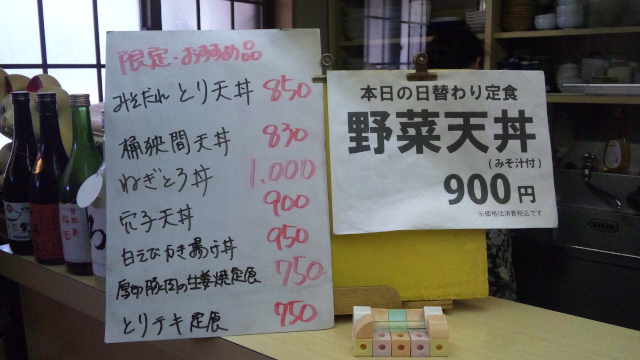 限定・おすすめ品
みそだれとり天丼 850
桶狭間天丼 830
ねぎとろ丼 1,000
穴子天丼 900
白えびかき揚げ丼 950
厚切豚肉の生姜焼定食 750
とりテキ定食 750
本日の日替わり定食
野菜天丼
(みそ汁付)
900円
※価格は消費税込です